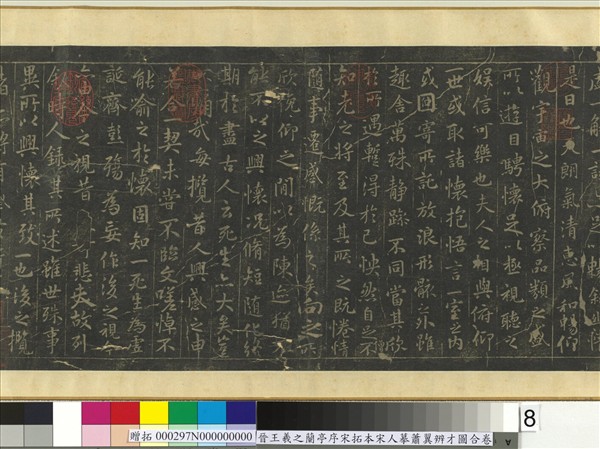 一觴一詠亦足以暢叙幽情
是日也天朗氣清惠風和暢仰
觀宇宙之大俯察品類之盛
所以遊目騁懷足以極視聽之
娛信可樂也夫人之相與俯仰
一世或取諸懷抱悟言一室之內
或因寄所託放浪形骸之外雖
趣舍萬殊静躁不同當其欣
於所遇暫得於己怏然自足不
知老之將至及其所之既惓情
隨事遷感慨係之矣向之所
欣俛仰之間以為陳迹猶不
能不以之興懷況脩短隨化終
期於盡古人云死生亦大矣豈
不痛哉每攬昔人興感之由
若合一契未嘗不臨文嗟悼不
能喻之於懷固知一死生為虛
誕齊彭殤為妄作後之視今
亦由今之視昔悲夫故列
叙時人錄其所述雖世殊事
異所以興懷其致一也後之攬
贈拓 000297N000000000 晉王羲之蘭亭序宋拓本宋人摹蕭翼辨才圖合卷
8
A